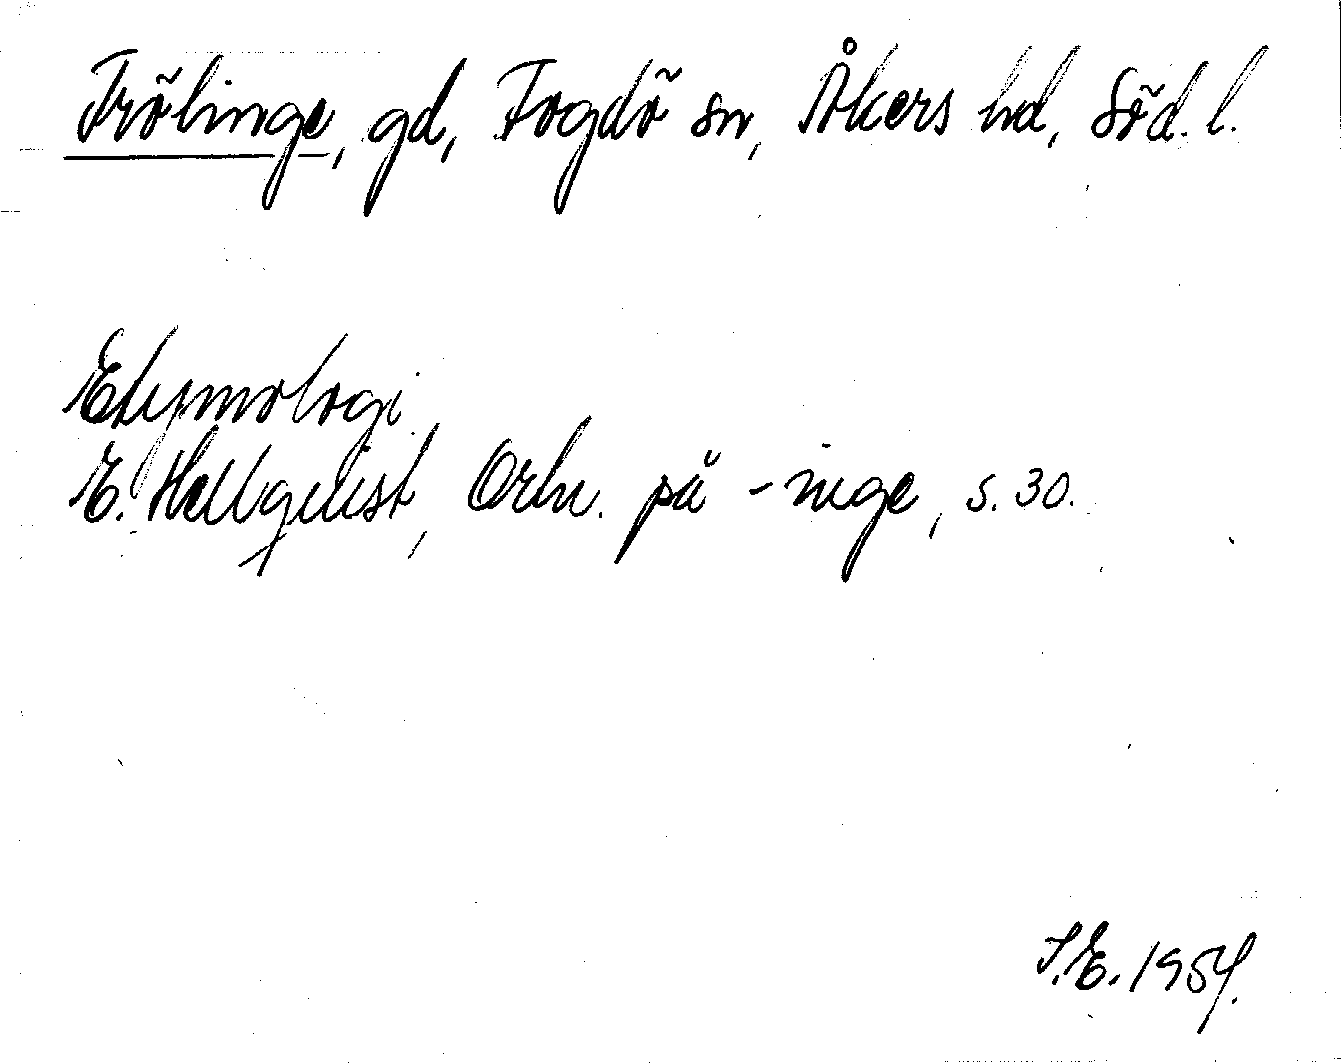 Frölinge, gd, Fogdö sn, Åkers hd, Söd. l.
Etymologi
E. Hellquist, Ortn. på -inge, s. 30.
S.E. 1954.